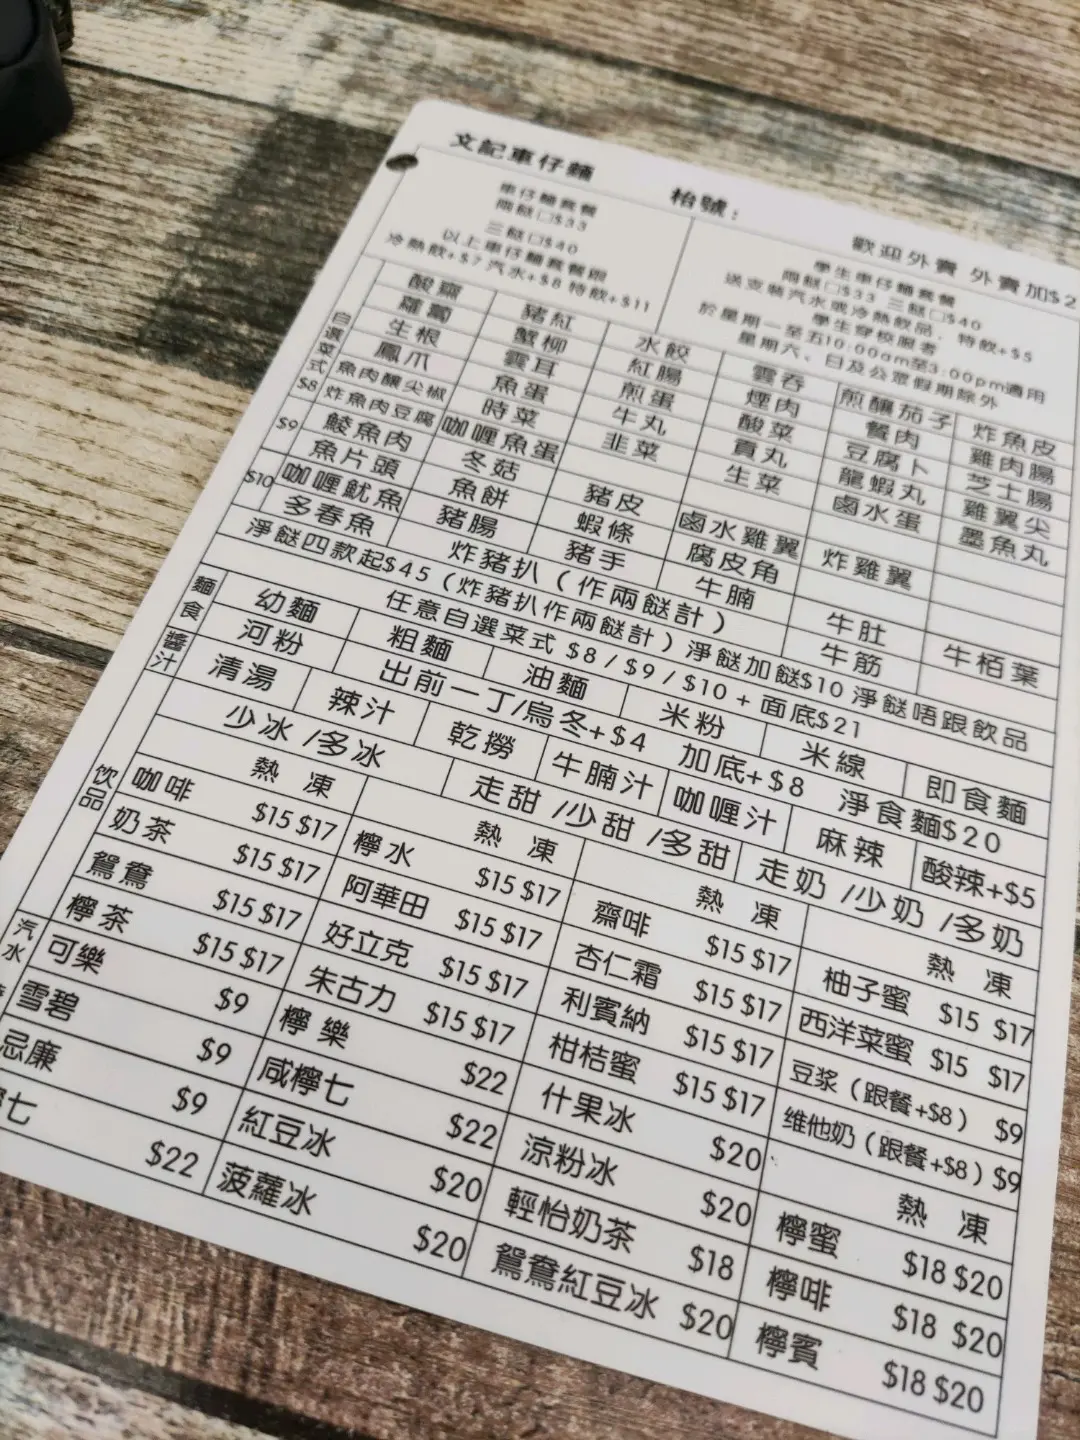 文記車仔麵 枱號:
歡迎外賣 外賣加$2
車仔麵套餐
兩餸□$33
三餸□$40
以上車仔麵套餐跟
冷熱飲+$7 汽水+$8 特飲+$11
學生車仔麵套餐
兩餸□$33 三餸□$40
送支裝汽水或冷熱飲品, 特飲+$5
學生穿校服者
於星期一至五10:00am至3:00pm適用
星期六、日及公眾假期除外
自選菜式
$8
酸齋 豬紅 水餃 雲吞 煎釀茄子 炸魚皮
蘿蔔 蟹柳 紅腸 煙肉 餐肉 雞肉腸
生根 雲耳 煎蛋 酸菜 豆腐卜 芝士腸
鳳爪 魚蛋 牛丸 貢丸 龍蝦丸 雞翼尖
魚肉釀尖椒 時菜 韭菜 生菜 鹵水蛋 墨魚丸
炸魚肉豆腐 咖喱魚蛋
$9
鯪魚肉 冬菇 豬皮 鹵水雞翼 炸雞翼
魚片頭 魚餅 蝦條 腐皮角
$10
咖喱魷魚 豬腸 豬手 牛腩 牛肚 牛栢葉
多春魚 炸豬扒(作兩餸計) 牛筋
淨餸四款起$45(炸豬扒作兩餸計)淨餸加餸$10 淨餸唔跟飲品
任意自選菜式 $8/$9/$10+面底$21
麵食
幼麵 粗麵 油麵 米粉 米線 即食麵
河粉 出前一丁/烏冬+$4 加底+$8 淨食麵$20
醬汁
清湯 辣汁 乾撈 牛腩汁 咖喱汁 麻辣 酸辣+$5
少冰/多冰 走甜/少甜/多甜 走奶/少奶/多奶
饮品
熱 凍 熱 凍 熱 凍 熱 凍
咖啡 $15 $17 檸水 $15 $17 齋啡 $15 $17 柚子蜜 $15 $17
奶茶 $15 $17 阿華田 $15 $17 杏仁霜 $15 $17 西洋菜蜜 $15 $17
鴛鴦 $15 $17 好立克 $15 $17 利賓納 $15 $17 豆浆(跟餐+$8) $9
檸茶 $15 $17 朱古力 $15 $17 柑桔蜜 $15 $17 维他奶(跟餐+$8) $9
汽水
可樂 $9 檸樂 $22 什果冰 $20 熱 凍
雪碧 $9 咸檸七 $22 涼粉冰 $20 檸蜜 $18 $20
忌廉 $9 紅豆冰 $20 輕怡奶茶 $18 檸啡 $18 $20
七 $22 菠蘿冰 $20 鴛鴦紅豆冰 $20 檸賓 $18 $20